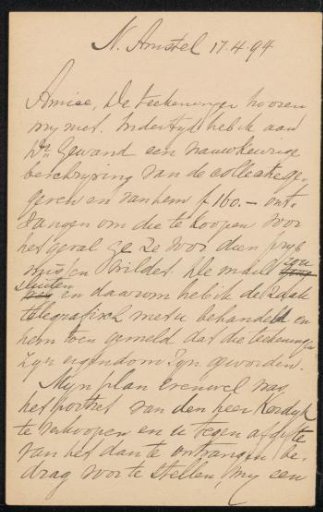 N. Amstel 17.4.94
Amice, De teekeningen hooren
my niet. Indertyd heb ik aan
Dr. Gewand een nauwkeurige
beschryving van de collectie ge-
geven en van hem f 160.- ont-
vangen om die te koopen voor
het geval ge ze voor dien prys
wildet De mail zou
sluiten en daarom heb ik de zaak
telegrafisch met u behandeld en
hem toen gemeld dat die teekeningen
zyn eigendom zyn geworden.
Myn plan evenwel was
het portret van den heer Kordyk
te verkoopen en u tegen afgifte
van het dan te ontvangen be-
drag voor te stellen my een